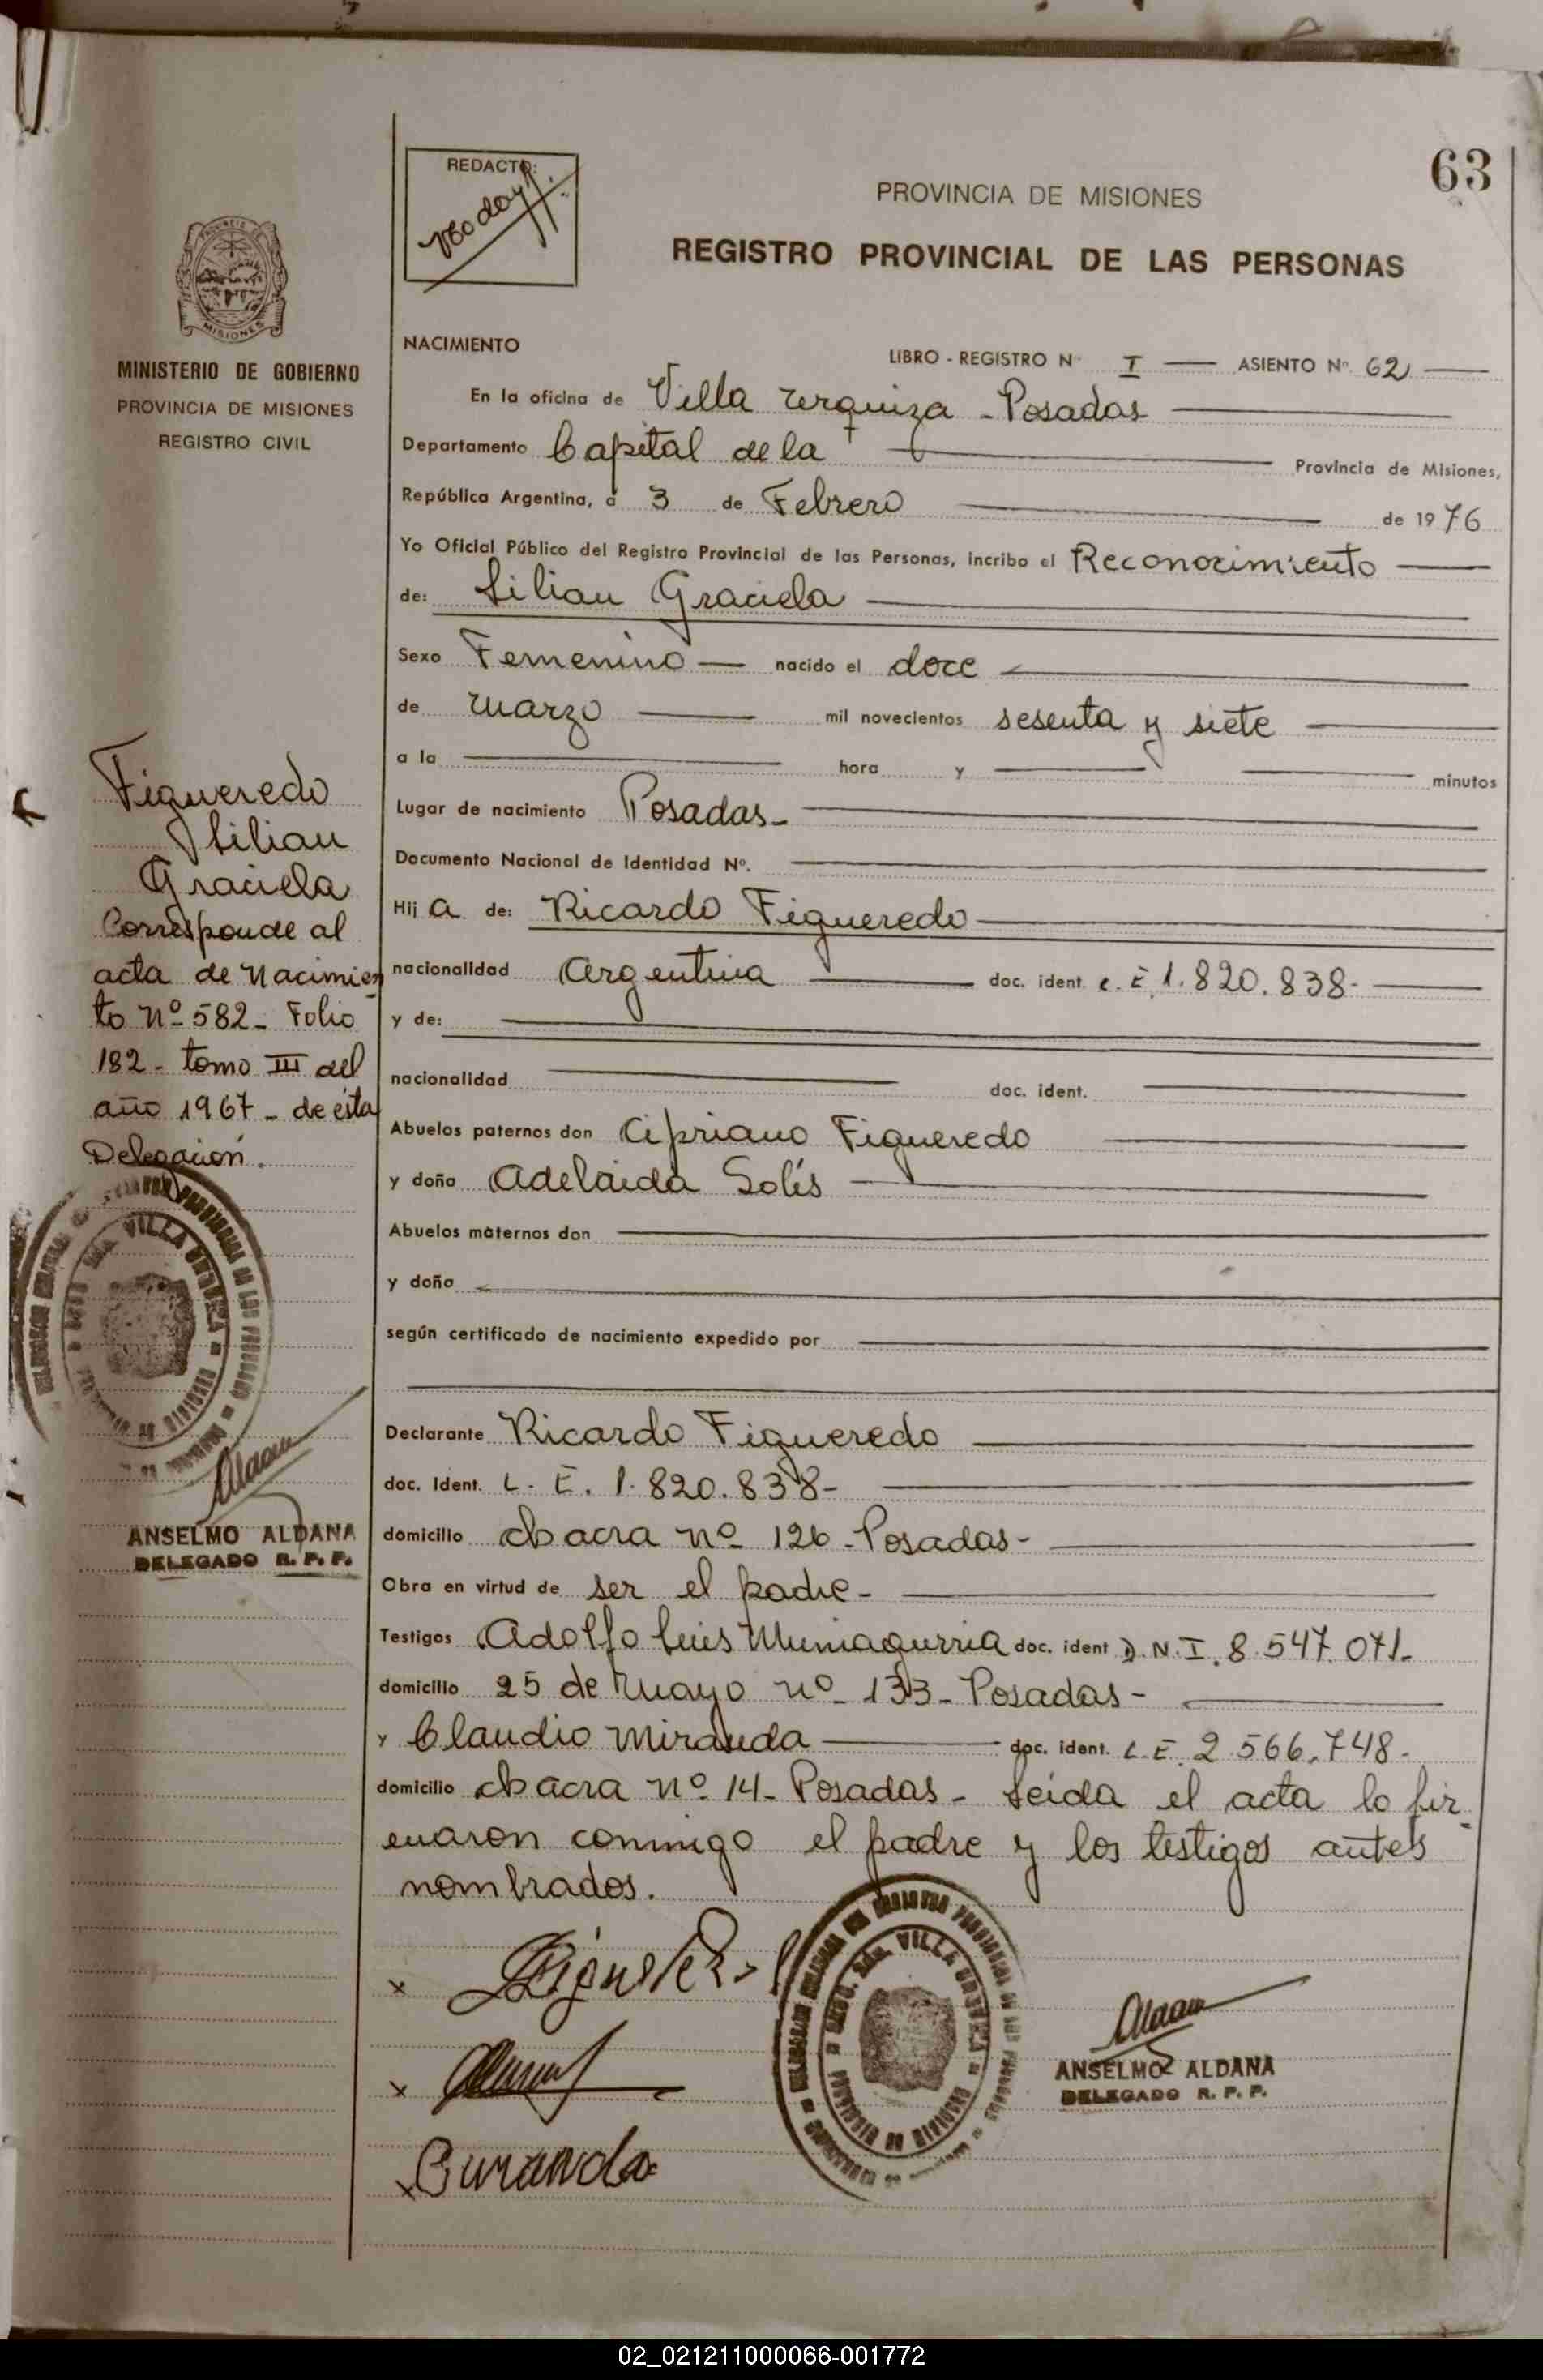 63
REDACTO:
PROVINCIA DE MISIONES
REGISTRO PROVINCIAL DE LAS PERSONAS
MISIONES
MINISTERIO DE GOBIERNO
PROVINCIA DE MISIONES
REGISTRO CIVIL
NACIMIENTO
LIBRO - REGISTRO Nº I — ASIENTO Nº 62 —
En la oficina de Villa Urquiza - Posadas
Departamento Capital de la Provincia de Misiones,
República Argentina, a 3 de Febrero de 1976
Yo Oficial Público del Registro Provincial de las Personas, incribo el Reconocimiento
de: Lilian Graciela
Sexo Femenino — nacido el doce
de marzo — mil novecientos sesenta y siete
a la hora y minutos
Lugar de nacimiento Posadas -
Documento Nacional de Identidad Nº.
Hij a de: Ricardo Figueredo
nacionalidad Argentina — doc. ident L. E. 1.820.838-
y de:
nacionalidad doc. ident.
Abuelos paternos don Cipriano Figueredo
y doña Adelaida Solís
Abuelos maternos don
y doña
según certificado de nacimiento expedido por
Declarante Ricardo Figueredo
doc. Ident. L. E. 1.820.838-
domicilio chacra nº 126 - Posadas -
Obra en virtud de ser el padre -
Testigos Adolfo Luis Muniagurria doc. ident D.N.I. 8.547.071-
domicilio 25 de Mayo nº 133 - Posadas -
y Claudio Miranda doc. ident. L.E. 2.566.748-
domicilio chacra nº 14 - Posadas - Leída el acta lo fir-
maron conmigo el padre y los testigos antes
nombrados.
ANSELMO ALDANA
DELEGADO R. P. P.
Figueredo
Lilian
Graciela
Corresponde al
acta de nacimien-
to nº 582 - Folio
182 - tomo III del
año 1967 - de esta
Delegación.
VILLA URQUIZA
ANSELMO ALDANA
DELEGADO R. P. P.
02_021211000066-001772